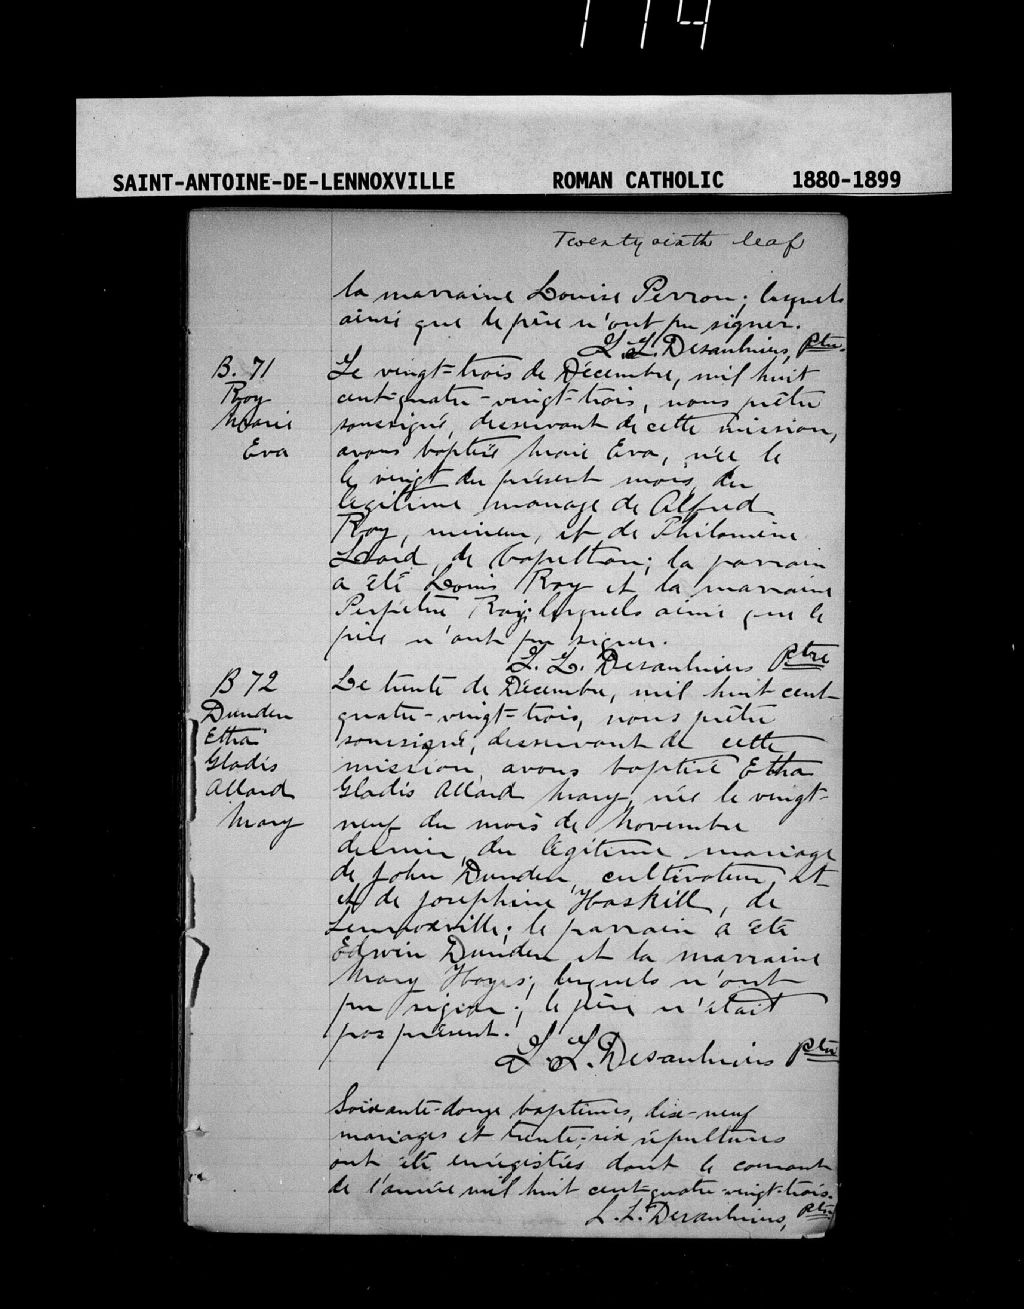 174
SAINT-ANTOINE-DE-LENNOXVILLE ROMAN CATHOLIC 1880-1899
Twenty sixth leaf
la marraine Louise Perron; lesquels
ainsi que le père n'ont pu signer.
L. L. Desaulniers, Ptre.
B. 71
Roy
Marie
Eva
Le vingt-trois de Décembre, mil huit
cent-quatre-vingt-trois, nous prêtre
soussigné, desservant de cette mission,
avons baptisé Marie Eva, née le
le vingt du présent mois, du
légitime mariage de Alfred
Roy, mineur, et de Philomène
de Capelton; la parrain
a été Louis Roy et la marraine
Perpétue Roy; lesquels ainsi que le
père n'ont pu signer.
L. L. Desaulniers Ptre
B 72
Dunden
Etha
Gladis
Allard
Mary
Le trente de Décembre, mil huit cent-
quatre-vingt-trois, nous prêtre
soussigné, desservant de cette
mission avons baptisé Etha
Gladis Allard Mary, née le vingt-
neuf du mois de Novembre
dernier, du légitime mariage
de John Dunden, cultivateur, et
et de Josephine Haskill, de
Lennoxville; le parrain a été
Edwin Dunden et la marraine
Mary Hayes; lesquels n'ont
pu signer; le père n'était
pas présent.
L. L. Desaulniers Ptre
Soixante-douze baptêmes, dix-neuf
mariages et trente-six sépultures
ont été enrégistrés dont le courant
de l'année mil huit cent-quatre-vingt-trois.
L. L. Desaulniers, Ptre